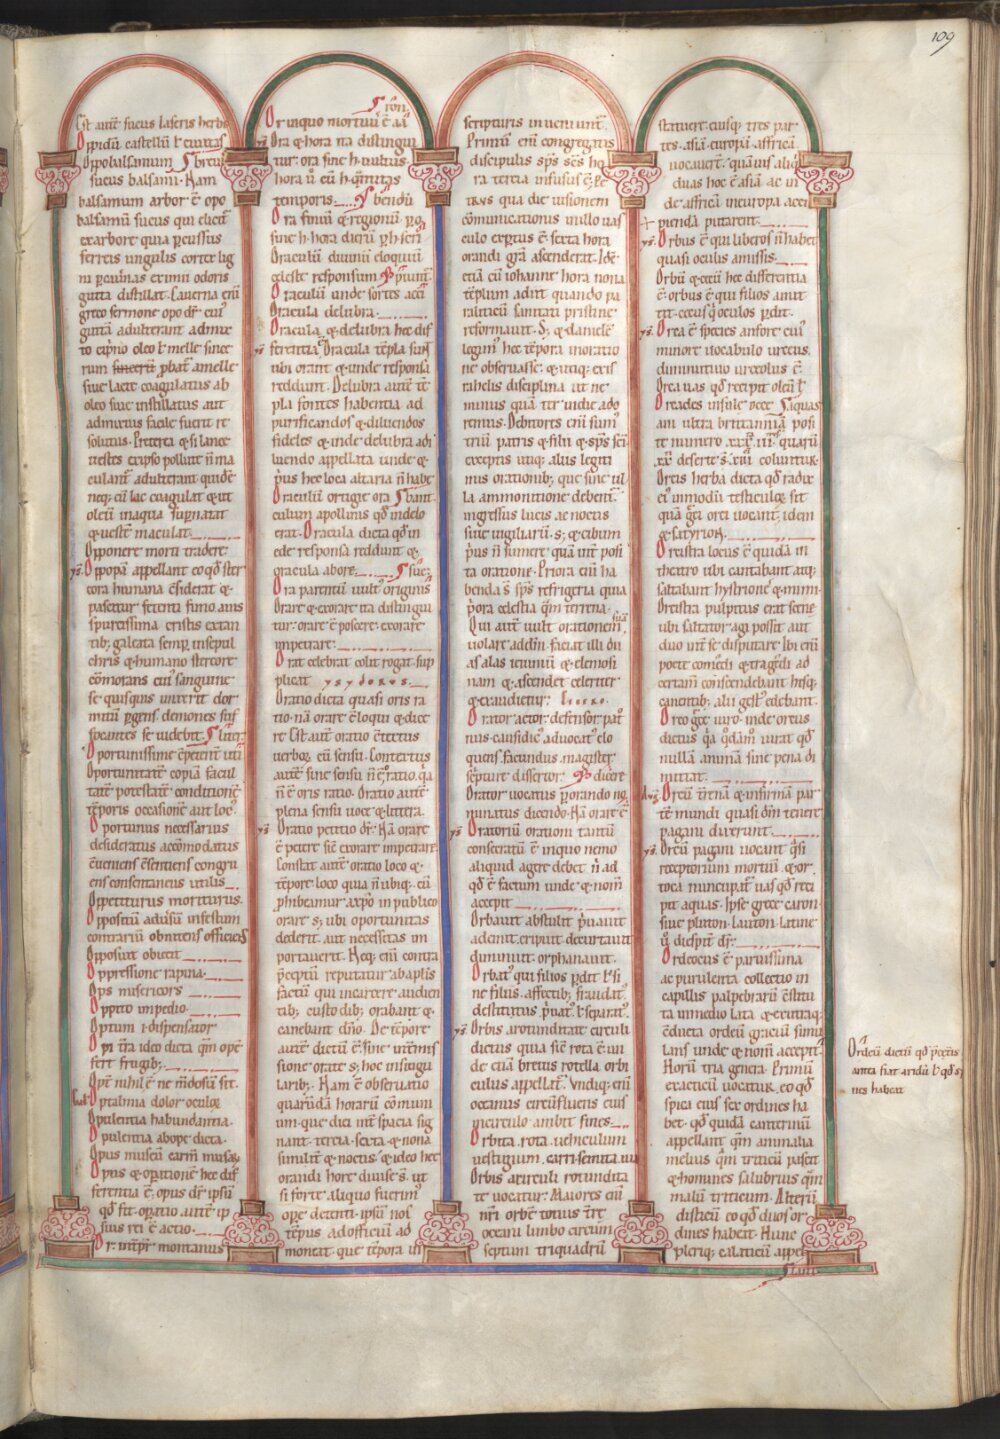 109
Est autē sucus laseris herbe
Oppidū castellū ł ciuitas
Oppobalsamum breuit
sucus balsami. Nam
balsamum arbor ē opo
balsamū sucus qui elicit̄
ex arbore quia p̄cussus
ferreis ungulis cortex lig
ni p̄ cauernas eximii odoris
gutta distillat. Cauerna enī
greco sermone opo dr̄. cui᷒
guttā adulterant admix
to ciprino oleo ł melle since
rum probat̄ a melle
siue lacte coagulatus ab
oleo siue instillatus aut
admixtus facile fuerit re
solutus. Preterea & si lanee
uestes ex ipso pollute n̄ ma
culant̄. adulterant̄ quidē
neq; cū lac coagulat & ut
oleū in aqua supernatat
& uestē maculat.
Opponere morti tradere
Oppopā appellant eo qđ ster
cora humana ċsiderat &
pascitur fetenti fimo auis
spurcissima cristis extan
tib; galeata semp̄ in sepul
chris & humano stercore
cōmorans cui᷒ sanguine
se quisquis unxerit dor
mitū p̄gens demones suf
focantes se uidebit.
Oportunissime
Oportunitatē. copiā facul
tatē potestatē conditionē
tēporis occasionē aut loci᷒
Oportunus necessarius
desideratus accomodatus
cueniens ċsentiens congru
ens consentaneus utilis
Oppetiturus moriturus.
Oppositū aduersū infestum
contrariū obnitens officiens
Opposuit obiecit
Oppressione rapina.
Ops misericors
Oppito impedio.
Optum .i. dispensator
Opi tr̄a ideo dicta qm̄ opē
fert frugib;
Opē nihil ē ne mdosū sit.
Optalmia dolor oculo℞
Opulentia habundantia.
Opulentia ab ope dicta.
Opus museū carm̄ musa℞
Opus & operationē hec dif
ferentia ē. opus dr̄ ipsū
qđ fit. operatio autē ip
sius rei ē actio.
Or. int̄pr̄. montanus
Or in quo mortuū ē
Ora & hora ita distingui
tur. ora sine h. uultus.
hora ū cū h. q̄ntitas
temporis
Ora finiū & regionū
sine h. hora dierū p̄ h scri
Oraculū diuinū eloquiū
celeste responsum
Oraculū unde sortes acci
Oracula delubra.
Oracula & delubra hec dif
ferentia. Oracula tēpla sunt
ubi orant & unde responsa
reddunt. Delubra autē tē
pla fontes habentia ad
purificandos & diluendos
fideles & inde delubra adi
luendo appellata unde &
p̄us hec loca altaria n̄ habe
Oraculū ortigie ora
culum apollinis qđ in delo
erat. Oracula dicta qđ in
ede responsa reddunt &
oracula ab ore.
Ora parentū uult᷒ originis
Orare & exorare ita distingui
tur. orare ē poscere. exorare
impetrare.
Orat celebrat colit rogat sup
plicat ysydorus.
Oratio dicta quasi oris ra
tio. nā orare ē loqui & dice
re. Est autē oratio ċtextus
uerbo℞ cū sensu. Contextus
autē sine sensu n̄ ē oratio. q̄a
n̄ ē oris ratio. Oratio autē
plena sensu uoce & littera.
Oratio petitio dr̄. Nā orare
ē petere sic̄ exorare impetrare.
Constat autē oratio loco &
tēpore. loco quia n̄ ubiq; cū
phibeamur a xp̄o in publico
orare s; ubi oportunitas
dederit. aut necessitas im
portauerit. Neq; enī contra
p̄ceptū reputatur ab ap̄lis
factū qui in carcere audien
tib; custodib; orabant &
canebant dn̄o. De tēpore
autē dictū ē. sine int̄mis
sione orate s; hoc in singu
larib;. Nam ē obseruatio
quarūdā horarū cōmuni
um que diei int̄spacia sig
nant. tercia. sexta. & nona
similit̄ & noctis & ideo hec
orandi hore diuise s. ut
si forte aliquo fuerim᷒
ope detenti. ipsū nos
tēpus ad officiū ad
moneat. que tēpora in
scripturis inueniunt̄.
Primū enī congregatis
discipulis sp̄s sc̄s ho
ra tercia infusus ē. Pe
trus qua die uisionem
cōmunicationis in illo uas
culo expertus ē. sexta hora
orandi gr̄a ascenderat. Idē
etiā cū iohanne hora nona
tēplum adiit quando pa
raliticū sanitati pristine
reformauit. S; & danielē
legim᷒ hec tēpora in oratio
ne obseruasse. & utiq; ex is
rahelis disciplina ut ne
minus quā ter in die ado
remus. Debitores enī sum᷒
triū patris & filii & sp̄s sc̄i
exceptis utiq; aliis legiti
mis orationib; que sine ul
la ammonitione debent̄
ingressus lucis ac noctis
siue uigiliarū. s; & cibum
p̄us n̄ sumere quā int̄posi
ta oratione. Priora enī ha
benda s̄ sp̄s refrigeria quia
p̄ora celestia qm̄ terrena.
Qui autē uult orationem suā
uolare ad dm̄ faciat illi du
as alas ieiuniū & elemosi
nam & ascendet celeriter
& exaudietur.
Orator actor. defensor pat᷒
nus. causidic᷒ aduocat᷒ elo
quens facundus. magister
sc̄pture dissertor. dicere
Orator uocatus perorando no
minatus dicendo. Nā orare ē
Oratoriū orationi tantū
consecratū ē in quo nemo
aliquid agere debet n̄ ad
qđ ē factum unde & nom̄
accepit
Orbauit abstulit p̄uauit
ademit. eripuit. decurtauit
diminuit. orphanauit.
Orbat᷒ qui filios p̄dit ł si
ne filiis. affectib; fraudat᷒
destitutus. p̄uat᷒ ł separat᷒.
Orbis a rotunditate circuli
dictus quia sic̄ rota ē. un
de etiā breuis rotella orbi
culus appellat̄. Undiq; enī
oceanus circūfluens eius
in circulo ambit fines.
Orbita rota. uehiculum
uestigium. carri semita uia
Orbis a circuli rotundita
te uocatur. Maiores enī
nr̄i orbē totius tr̄e
oceani limbo circum
septum triquadrū
statuere. eiusq; tres par
tes. asiā. europā. affricā
uocauere. quāuis aliq᷒
duas hoc ē asiā ac in
de affricā in europa acci
piendā putarent.
Orbus ē qui liberos n̄ habet
quasi oculis amissis.
Orbū & cecū hec differentia
ē. orbus ē qui filios amit
tit. cecus q̄ oculos p̄dit.
Orea ē species anfore cui᷒
minore uocabulo urceus.
diminutiuo urceolus ē.
Orea uas qđ recipit oleū ł
Oreades insule
ani ultra brittanniā posi
te numero xxx.iii. quarū
xx deserte s̄ xiii coluntur.
Oreis herba dicta qđ radix
ei᷒ in modū testiculo℞ sit
quā greci orei uocant. idem
& satyrion.
Orcistra locus ē quidā in
theatro ubi cantabant atq;
saltabant hystriones & mimi.
Orcistra pulpitus erat scene
ubi saltator agi possit aut
duo int̄ se disputare. Ibi enī
poete comedi & tragedi ad
certam̄ conscendebant hisq;
canentib; alii gest᷒ edebant.
Oreo grece iuro. inde oreus
dictus q̄a qđam iurat qđ
nullā animā sine pena di
mittat.
Orcū tr̄enā & infirmā par
tē mundi quasi dm̄ tenere
pagani dixerunt.
Orcū pagani uocant q̄si
receptorium mortuū. & or
toca nuncupat̄ uas qđ reci
pit aquas. Ipse grece caron
siue pluton. lauton. latine
ū diespit̄ dr̄.
Ordeoeus ē paruissima
ac purulenta collectio in
capillis palpebrarū ċstitu
ta in medio lata & ex utraq;
ċducta ordeū granū simu
lans unde & nom̄ accepit.
Horū tria genera. Primū
exacticū uocatur. eo qđ
spica eius sex ordines ha
bet. qđ quidā canterinū
appellant qm̄ animalia
melius qm̄ triticū pascit
& homines salubrius qm̄
malū triticum. Alterū
disticū eo qđ duos or
dines habeat. Hunc
pleriq; galaticū appel
Ordeū dictū qđ p̄ ceteris
ante fiat aridū ł qđ spi
nes habeat